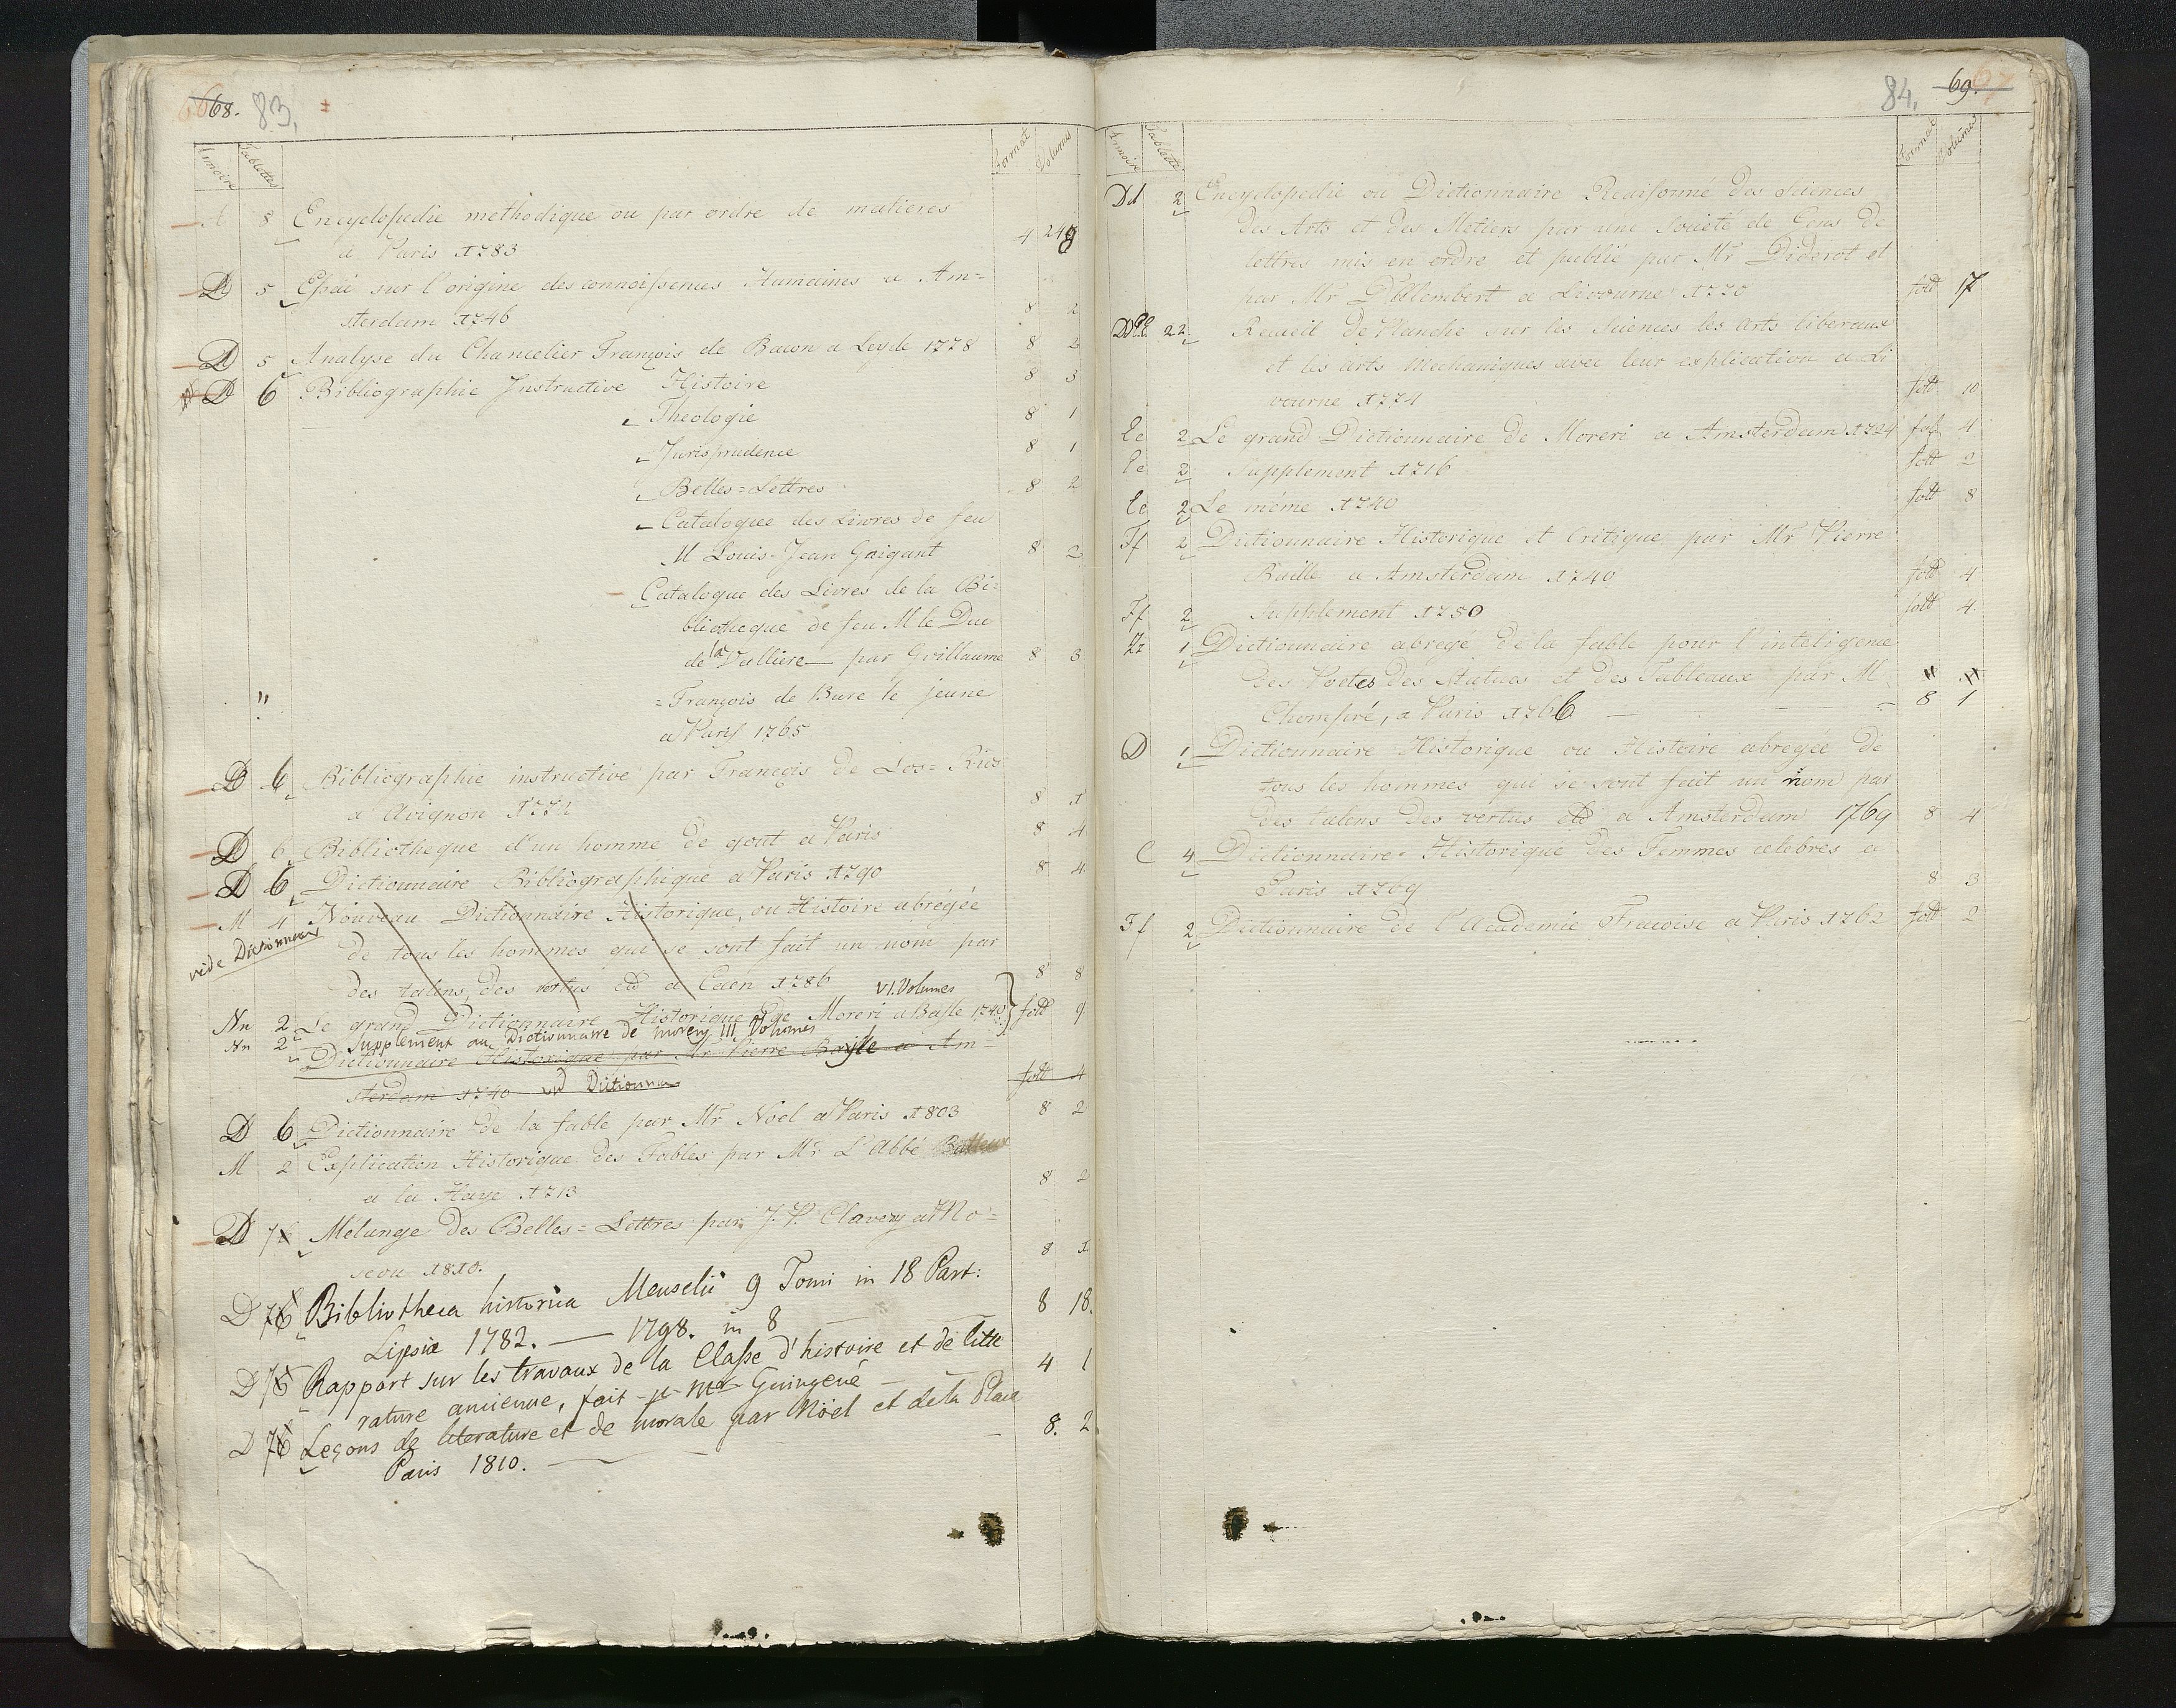 68. 83.
Armoire Tablettes Format Volums
8 Encyclopedie methodique ou par ordre de matieres
a Paris 1783 4
D 5 Essai sur l'origine des connoissences Humaines a Am=
sterdam 1746 8 2
D 5 Analyse du Chancelier François de Bacon a Leyde 1778 8 2
D 6 Bibliographie Instructive Histoire 8 3
Theologie 8 1
Jurisprudence 8 1
Belles=Lettres 8 2
Catalogue des Livres de feu
M Louis-Jean Gaigant 8 2
Catalogue des Livres de la Bi=
bliotheque de feu M le Duc
de la Valliere — par Guillaume 8 3
" =François de Bure le jeune
a Paris 1765
D 6 Bibliographie instructive par François de Los=Rios
a Avignon 8 1
D 6 Bibliotheque d'un homme de gout a Paris 8 4
D 6 Dictionnaire Bibliographique a Paris 1790 8 4
M 4 Nouveau Dictionnaire Historique, ou Histoire abrégée
vide Dictionnaire de tous les hommes qui se sont fait un nom par
des talens, des vertus a Caen 1786 8 8
VI. Volumes
Nn 2 Le grand Dictionnaire Historique de Moreri a Basle 1740 foll 9
Nn 2 Supplement au Dictionnaire de morery III Volumes
Dictionnaire Historique par Mr Pierre Bayle a Am=
sterdam 1740 vid Dictionna foll 4
D 6 Dictionnaire de la fable par Mr Noel a Paris 1803 8 2
M 2 Explication Historique des Fables par Mr L'Abbé Batteux
a la Haye 1713 8 2
D 7 Melange des Belles=Lettres par J. P. Clavery a Mo=
scou 1810. 8 1
D 7 Bibliotheca historica Meuselii 9 Tomi in 18 Part:
Lipsiæ 1782. — 1798. in 8 — 8 18.
D 7 Rapport sur les travaux de la Classe d'histoire et de litte
rature ancienne, fait p mr Guingené — 4 1
D 7 Leçons de literature et de morale par Nöel et de la Place
Paris 1810. — 8. 2
84. 69.
Armoire Tablette Format Volumes
Dd 2 Encyclopedie ou Dictionnaire Reaisonné des Sciences
des Arts et des Metiers par une Societé de Gens de
lettres mis en ordre et publié par Mr Diderot et
par Mr D'Alembert a Livourne 1770 foll 17
22. Recueil de Planche sur les Sciences les arts liberaux
et les arts Mechaniques avec leur explication a Li
vourne 1774 foll 10
Ee 2 Le grand Dictionnaire de Moreri a Amsterdam 1724 fol 4
Ee 2 Supplement 1716 foll 2
Ee 2 Le même 1740 foll 8
Ff 2 Dictionnaire Historique et Critique par Mr Pierre
Baille a Amsterdam 1740 foll 4
Ff 2 Supplement 1750 foll 4.
Zz 1 Dictionnaire abregé de la fable pour l'inteligence
des Poetes des Statues et des Tableaux par M
Chompré, a Paris 1766 — 8 1
D 1 Dictionnaire Historique ou Histoire abregée de
tous les hommes qui se sont fait un nom par
des talens des vertus a Amsterdam 1769 8 4
C 4 Dictionnaire Historique des Femmes celebres a
Paris 1769 8 3
Ff 2 Dictionnaire de l'Academie Francoise a Paris 1762 foll 2